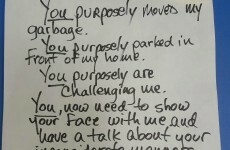 You purposely moved my
garbage.
You purposely parked in
front of my home.
You purposely are
challenging me.
You, now need to show
your face with me and
have a talk about your
inconsiderate manners